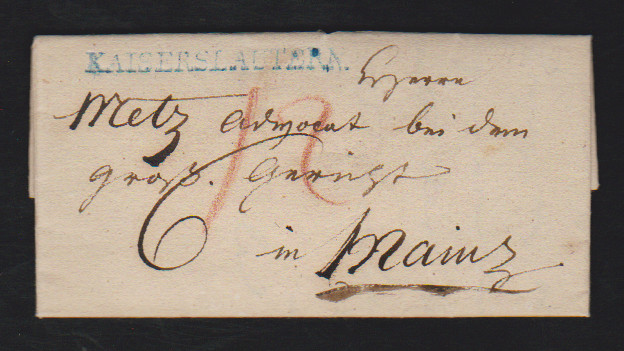 KAISERSLAUTERN.
Herrn
Metz Advocat bei dem
Groß. Gericht
in Mainz
6
12